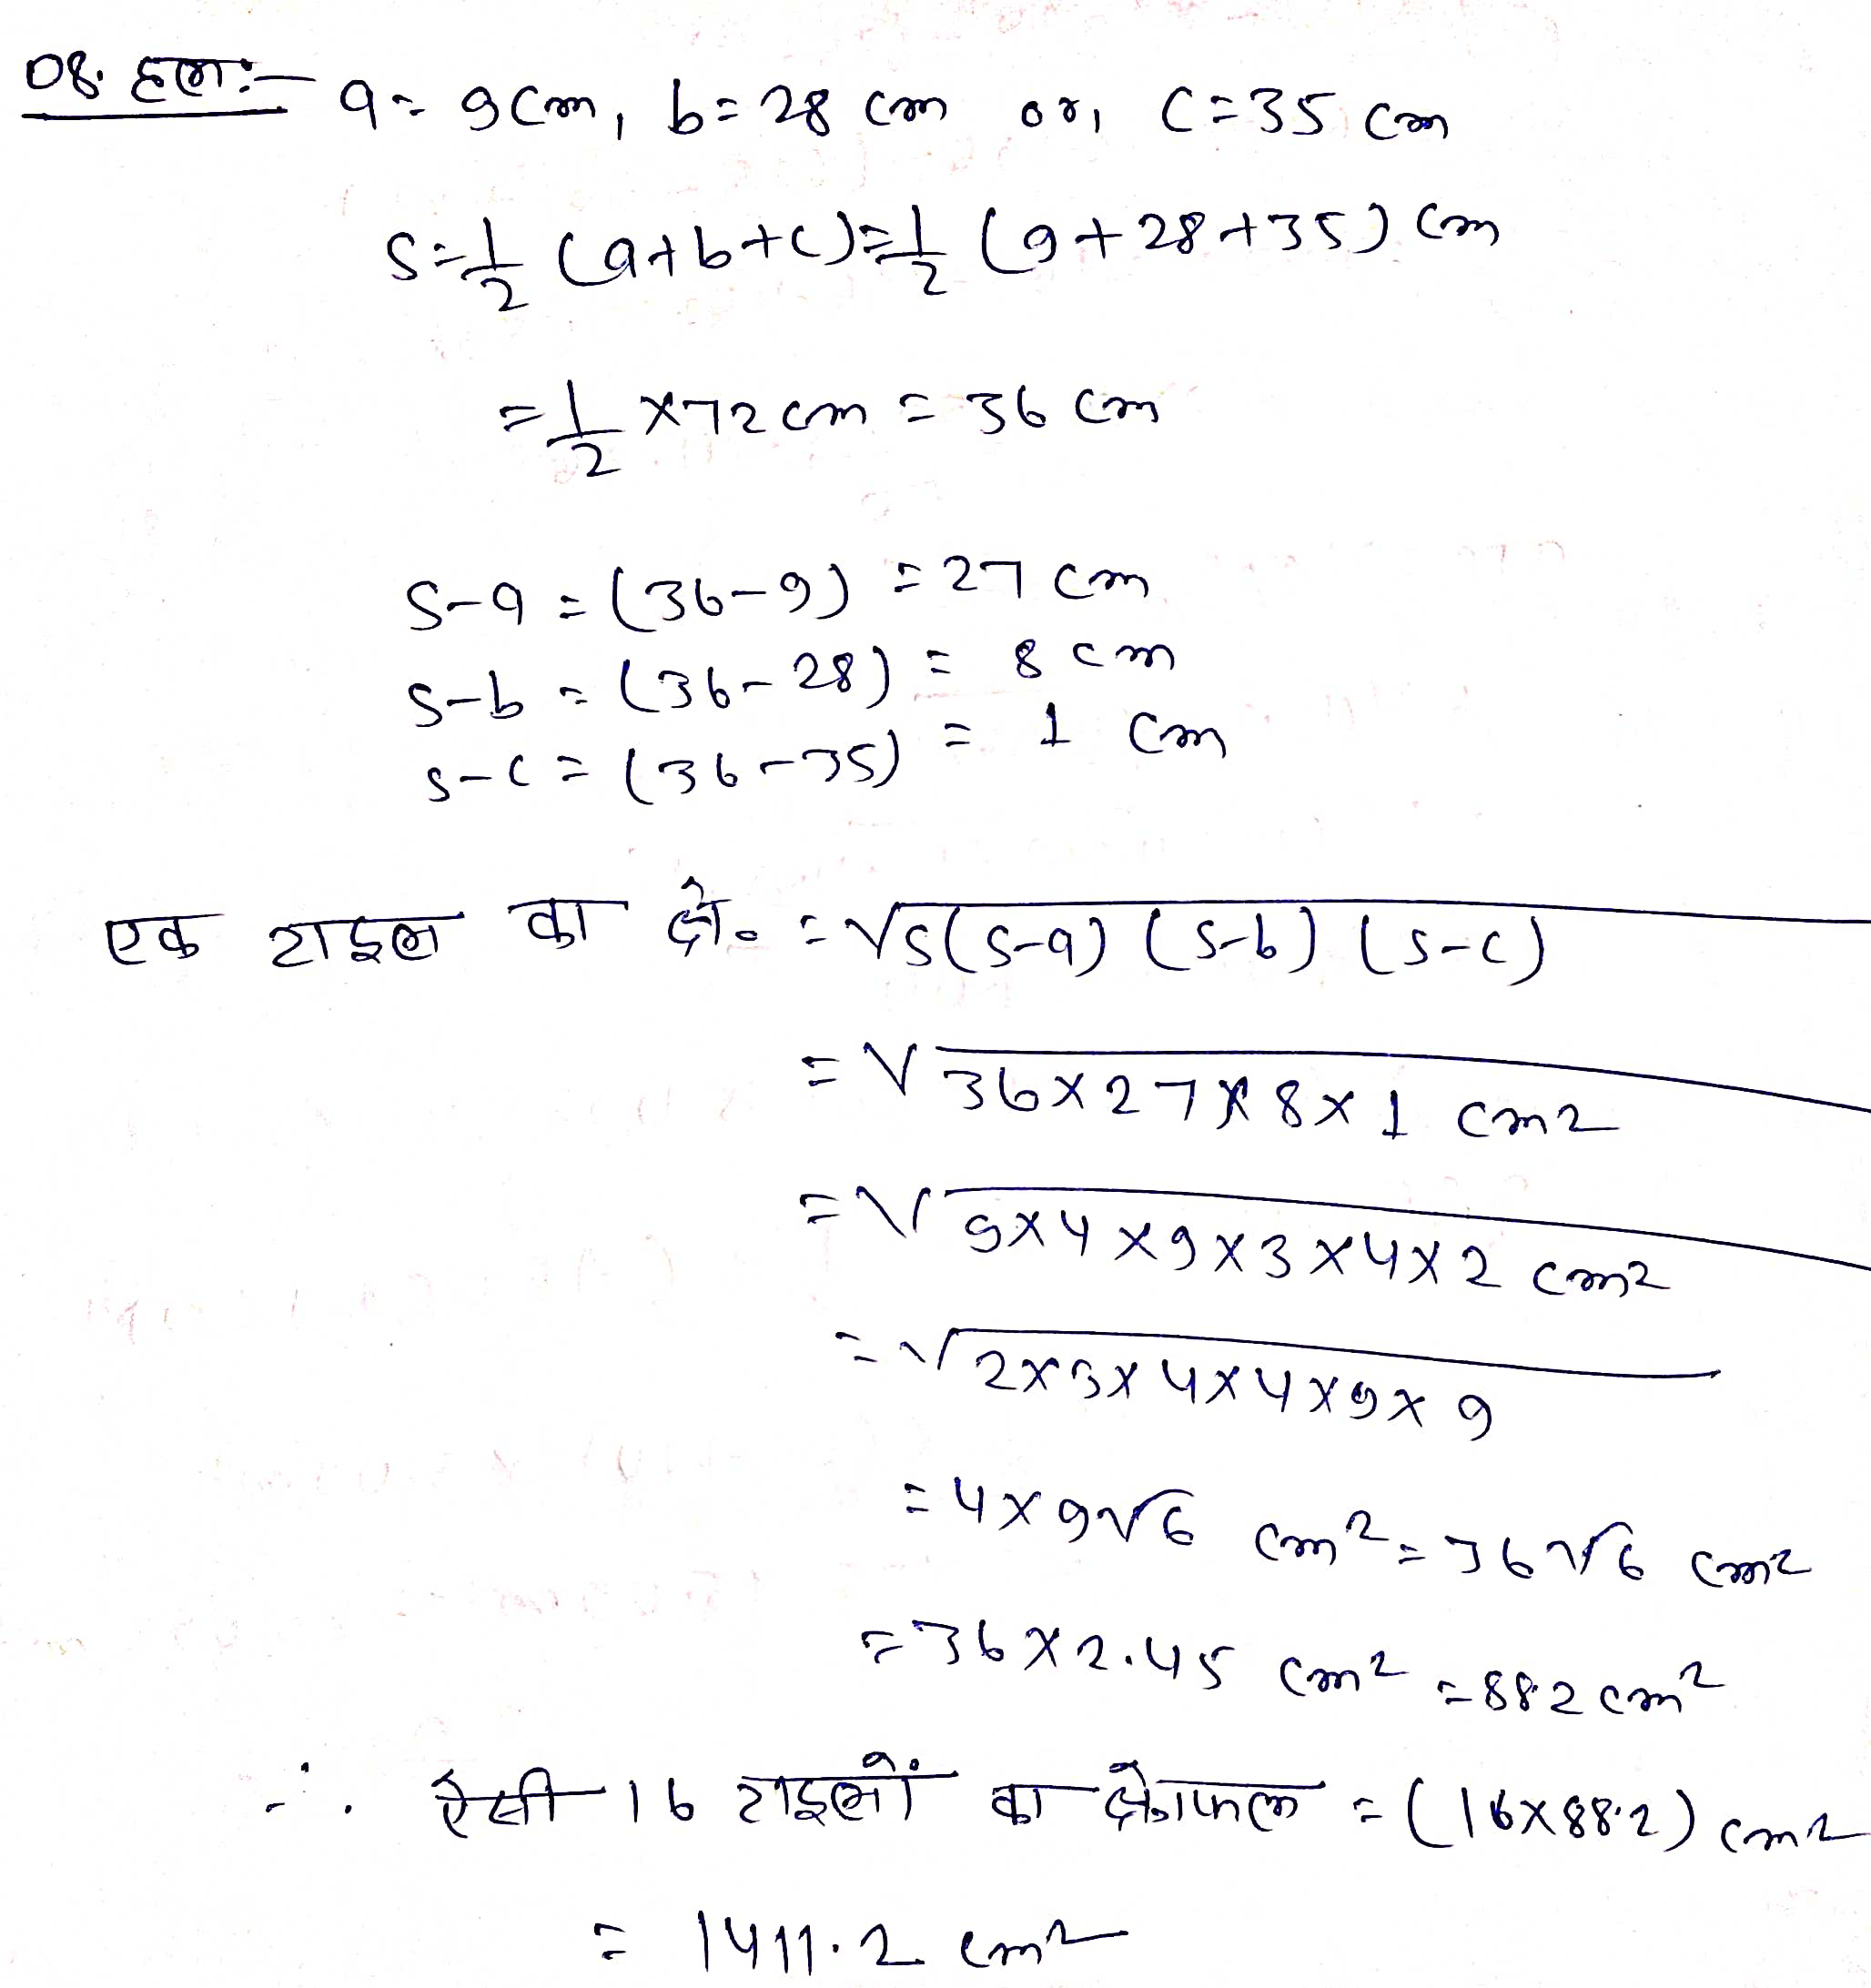 08. हल:- a = 9 cm, b = 28 cm or, c = 35 cm
s = 1/2 (a+b+c) = 1/2 (9+28+35) cm
= 1/2 × 72 cm = 36 cm
s-a = (36-9) = 27 cm
s-b = (36-28) = 8 cm
s-c = (36-35) = 1 cm
एक टाइल का क्षे० = √s(s-a) (s-b) (s-c)
= √36×27×8×1 cm2
= √9×4×9×3×4×2 cm2
= √2×3×4×4×9×9
= 4×9√6 cm² = 36√6 cm2
= 36×2.45 cm² = 88.2 cm²
∴ ऐसी 16 टाइलों का क्षेत्रफल = (16×88.2) cm2
= 1411.2 cm²